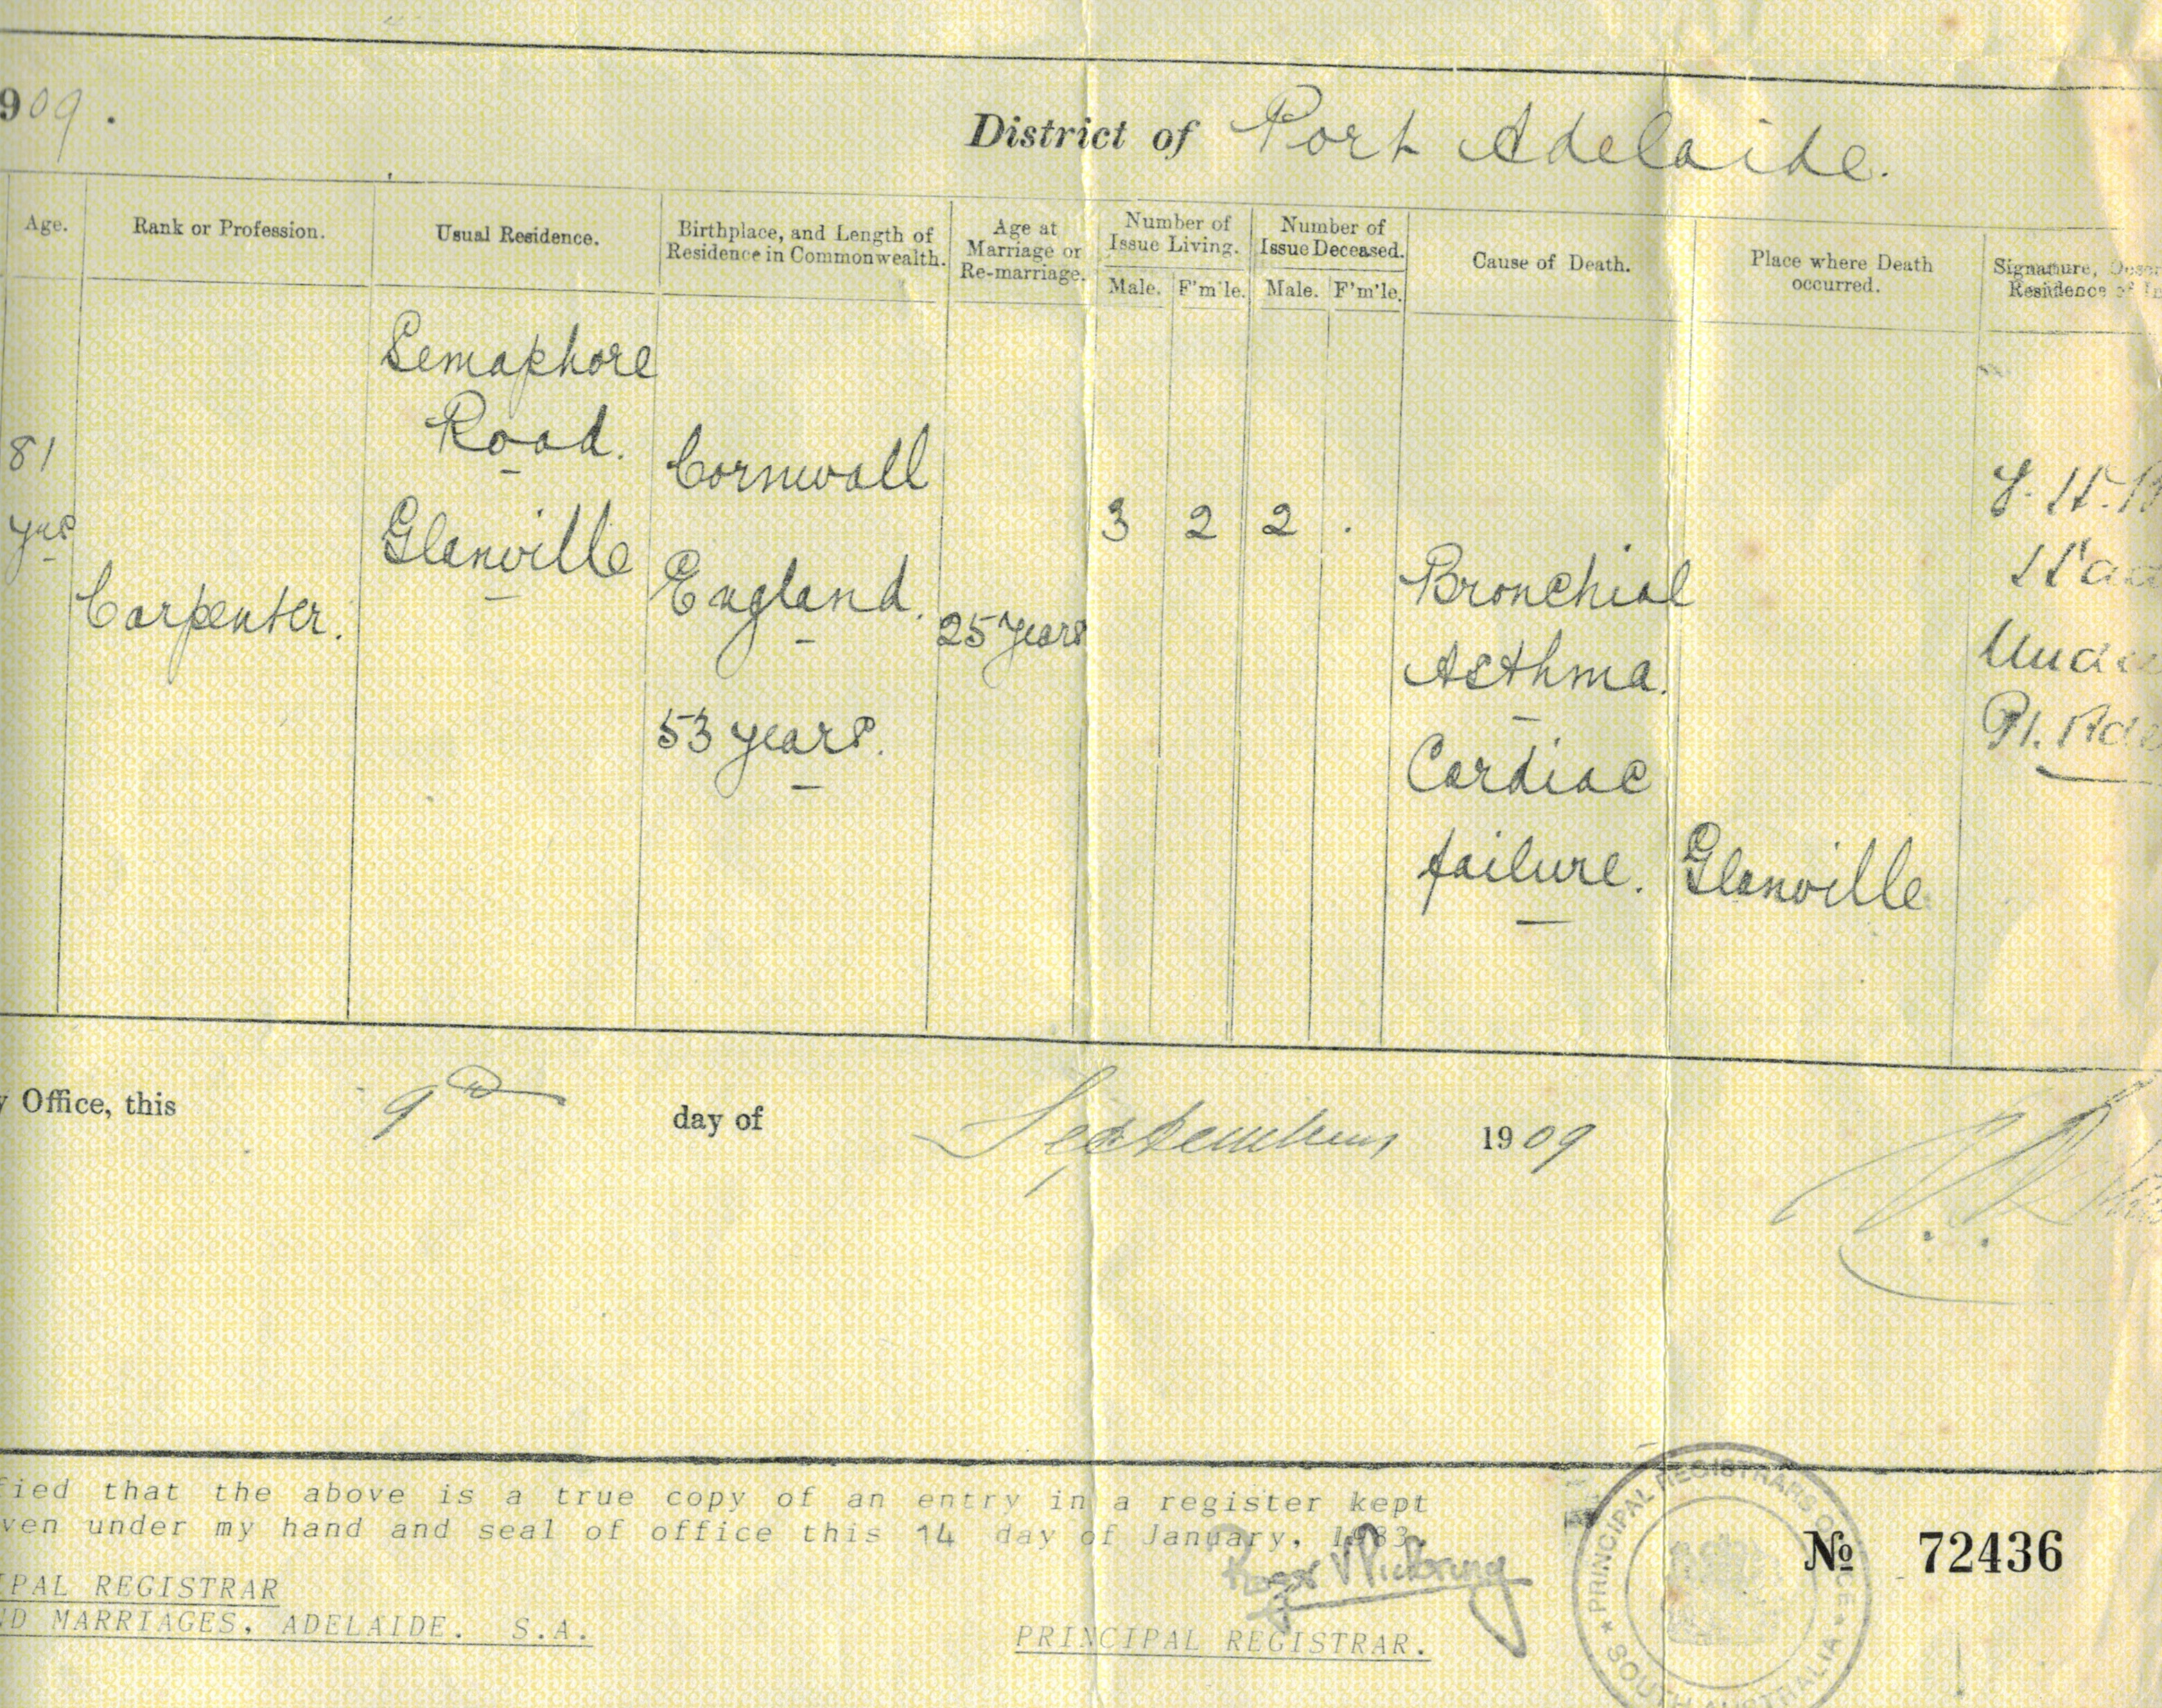 909.
District of Port Adelaide.
Age.
Rank or Profession.
Usual Residence.
Birthplace, and Length of
Residence in Commonwealth.
Age at
Marriage or
Re-marriage.
Number of
Issue Living.
Male. F'm'le.
Number of
Issue Deceased.
Male. F'm'le.
Cause of Death.
Place where Death
occurred.
Signature,
Residence of
81
yrs
Carpenter.
Semaphore
Road.
Glanville
Cornwall
England.
53 years.
25 years
3 2 2 .
Bronchial
Asthma.
Cardiac
failure.
Glanville
Office, this 9th day of September 1909
fied that the above is a true copy of an entry in a register kept
ven under my hand and seal of office this 14 day of January, 1983.
IPAL REGISTRAR
ND MARRIAGES, ADELAIDE. S.A.
PRINCIPAL REGISTRAR.
PRINCIPAL REGISTRARS OFFICE
SOUTH AUSTRALIA
No 72436